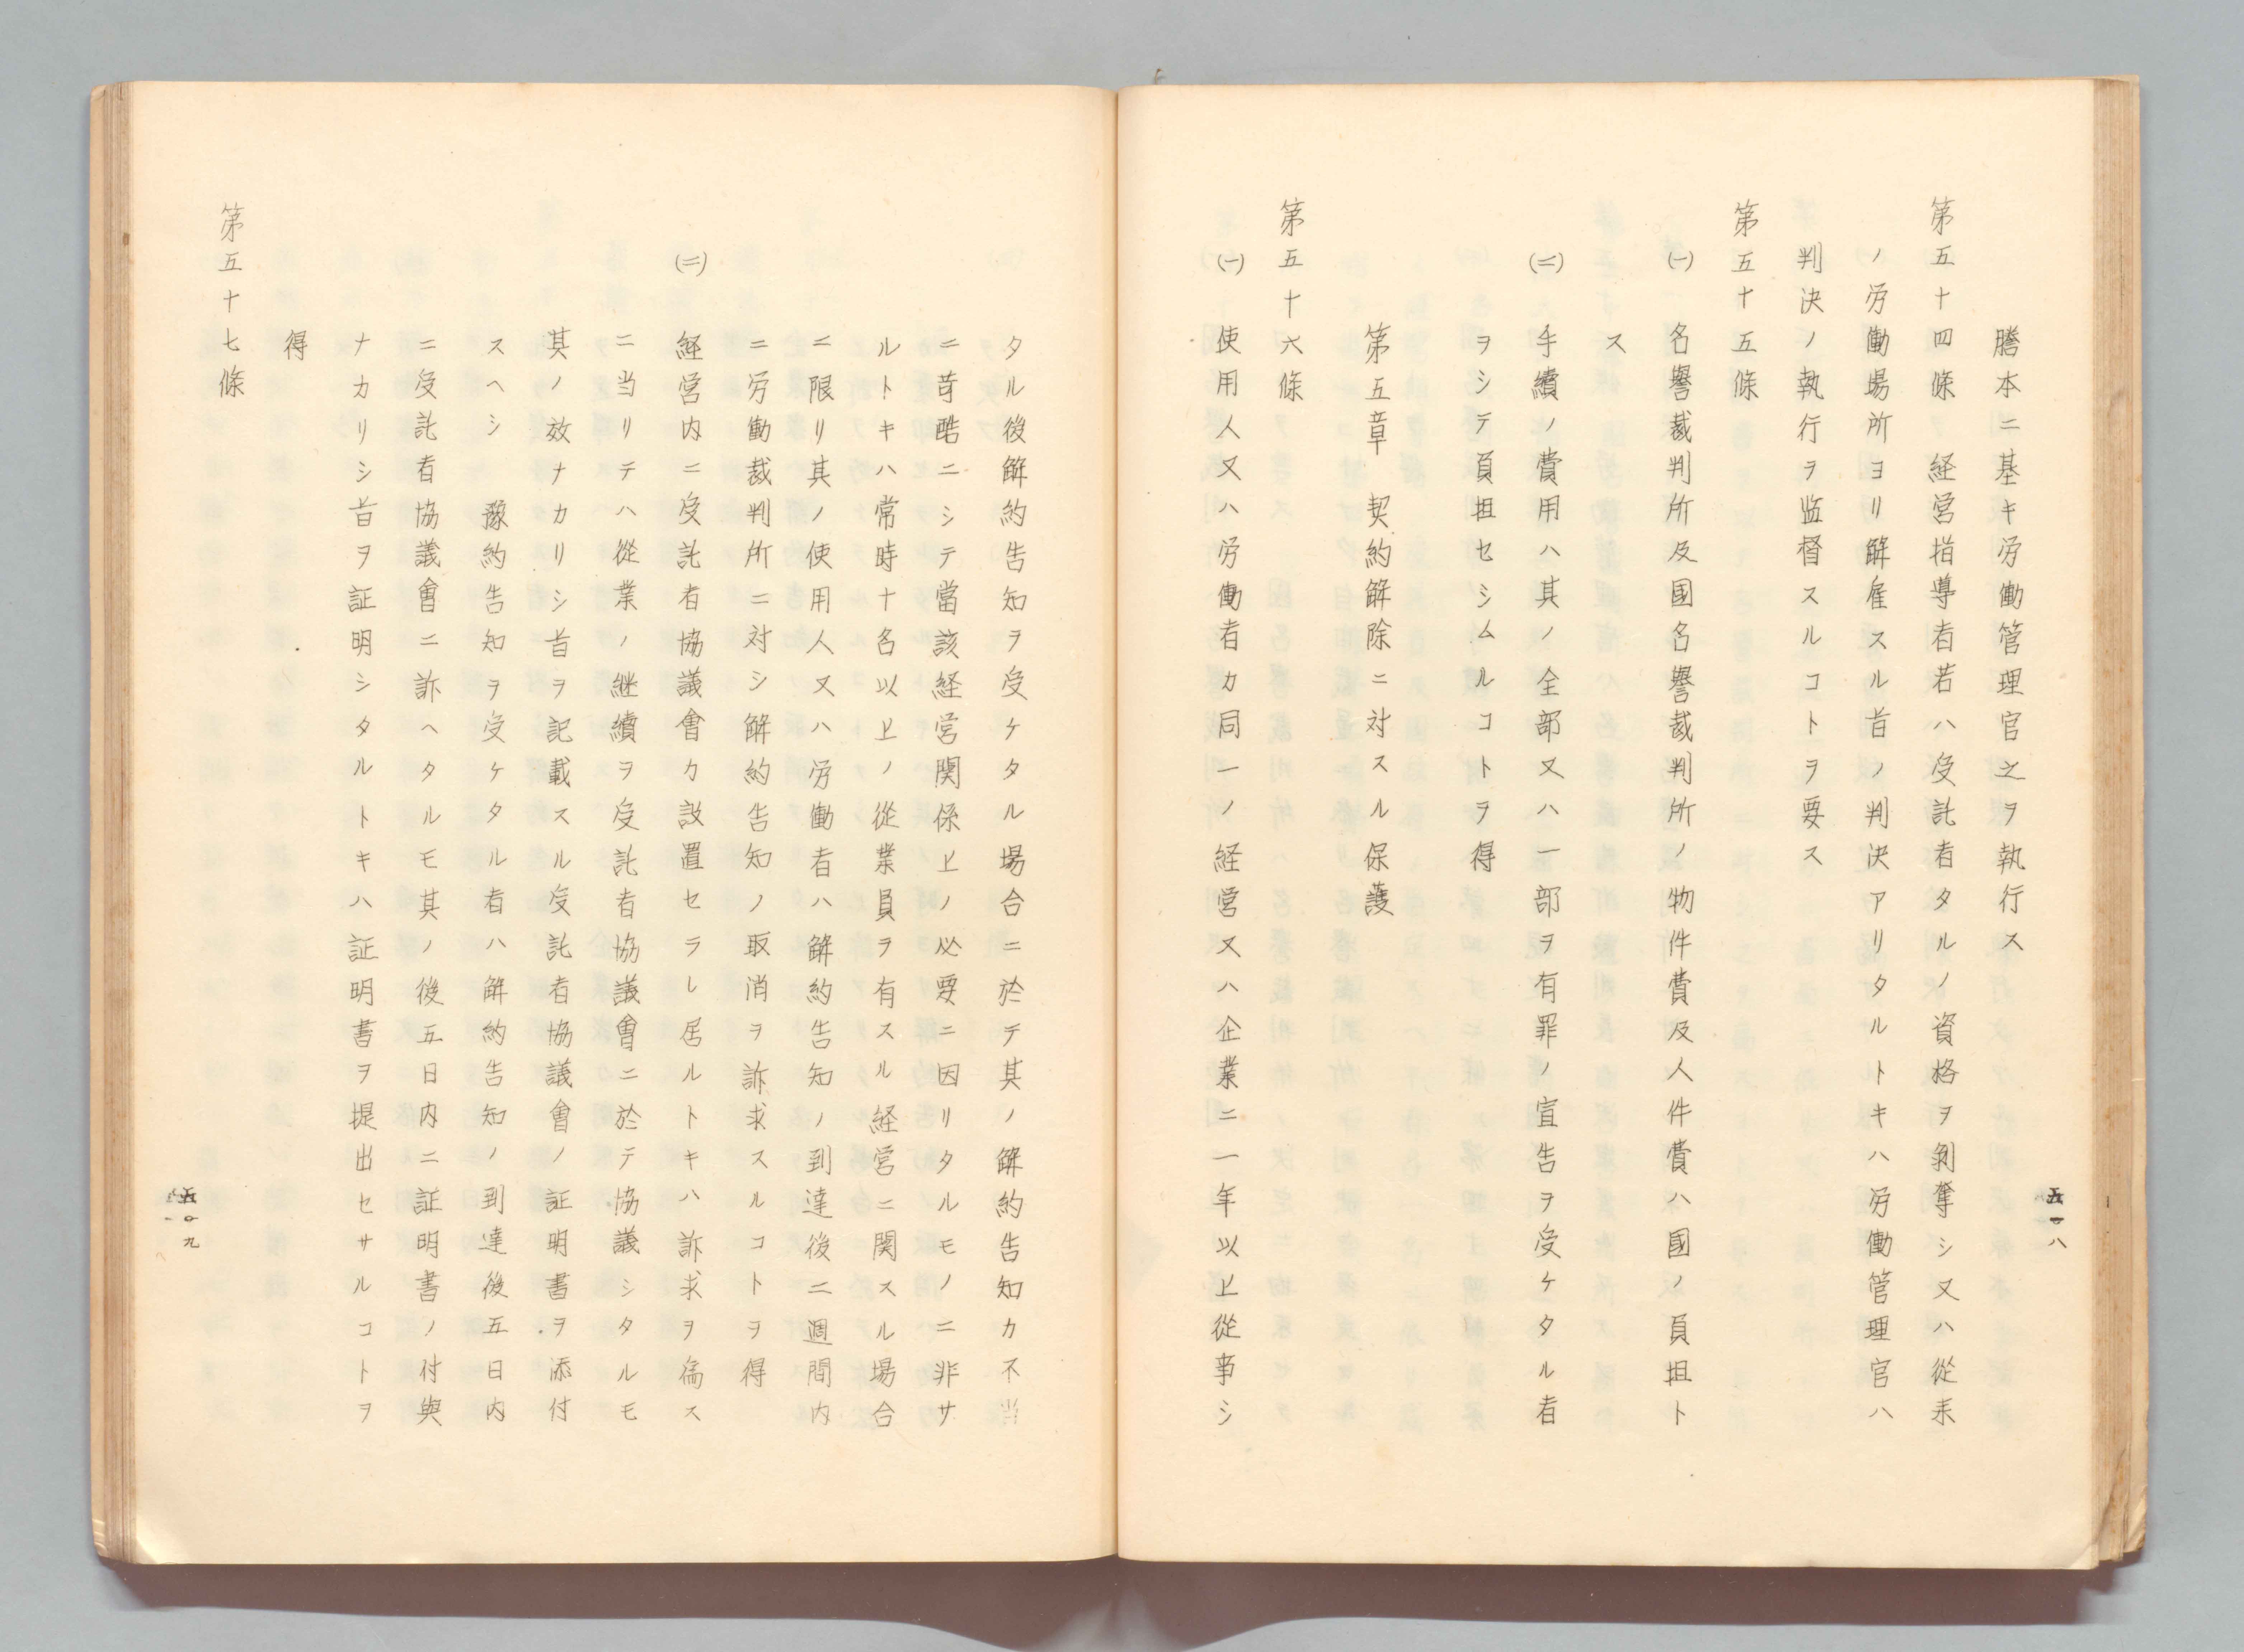 謄本ニ基キ労働管理官之ヲ執行ス
第五十四條　経営指導者若ハ受託者タルノ資格ヲ剝奪シ又ハ從来
ノ労働場所ヨリ解雇スル旨ノ判決アリタルトキハ労働管理官ハ
判決ノ執行ヲ監督スルコトヲ要ス
第五十五條
㈠　名譽裁判所及国名譽裁判所ノ物件費及人件費ハ國ノ負担ト
ス
㈡　手續ノ費用ハ其ノ全部又ハ一部ヲ有罪ノ宣告ヲ受ケタル者
ヲシテ負担セシムルコトヲ得
第五章　契約解除ニ対スル保護
第五十六條
㈠　使用人又ハ労働者カ同一ノ経営又ハ企業ニ一年以上從事シ
五一八
タル後解約告知ヲ受ケタル場合ニ於テ其ノ解約告知カ不当
ニ苛酷ニシテ當該経営関係上ノ必要ニ因リタルモノニ非サ
ルトキハ常時十名以上ノ從業員ヲ有スル経営ニ関スル場合
ニ限リ其ノ使用人又ハ労働者ハ解約告知ノ到達後二週間内
ニ労働裁判所ニ対シ解約告知ノ取消ヲ訴求スルコトヲ得
㈡　経営内ニ受託者協議會カ設置セラレ居ルトキハ訴求ヲ為ス
ニ当リテハ從業ノ継續ヲ受託者協議會ニ於テ協議シタルモ
其ノ效ナカリシ旨ヲ記載スル受託者協議會ノ証明書ヲ添付
スヘシ　豫約告知ヲ受ケタル者ハ解約告知ノ到達後五日内
ニ受託者協議會ニ訴ヘタルモ其ノ後五日内ニ証明書ノ付與
ナカリシ旨ヲ証明シタルトキハ証明書ヲ提出セサルコトヲ
得
第五十七條